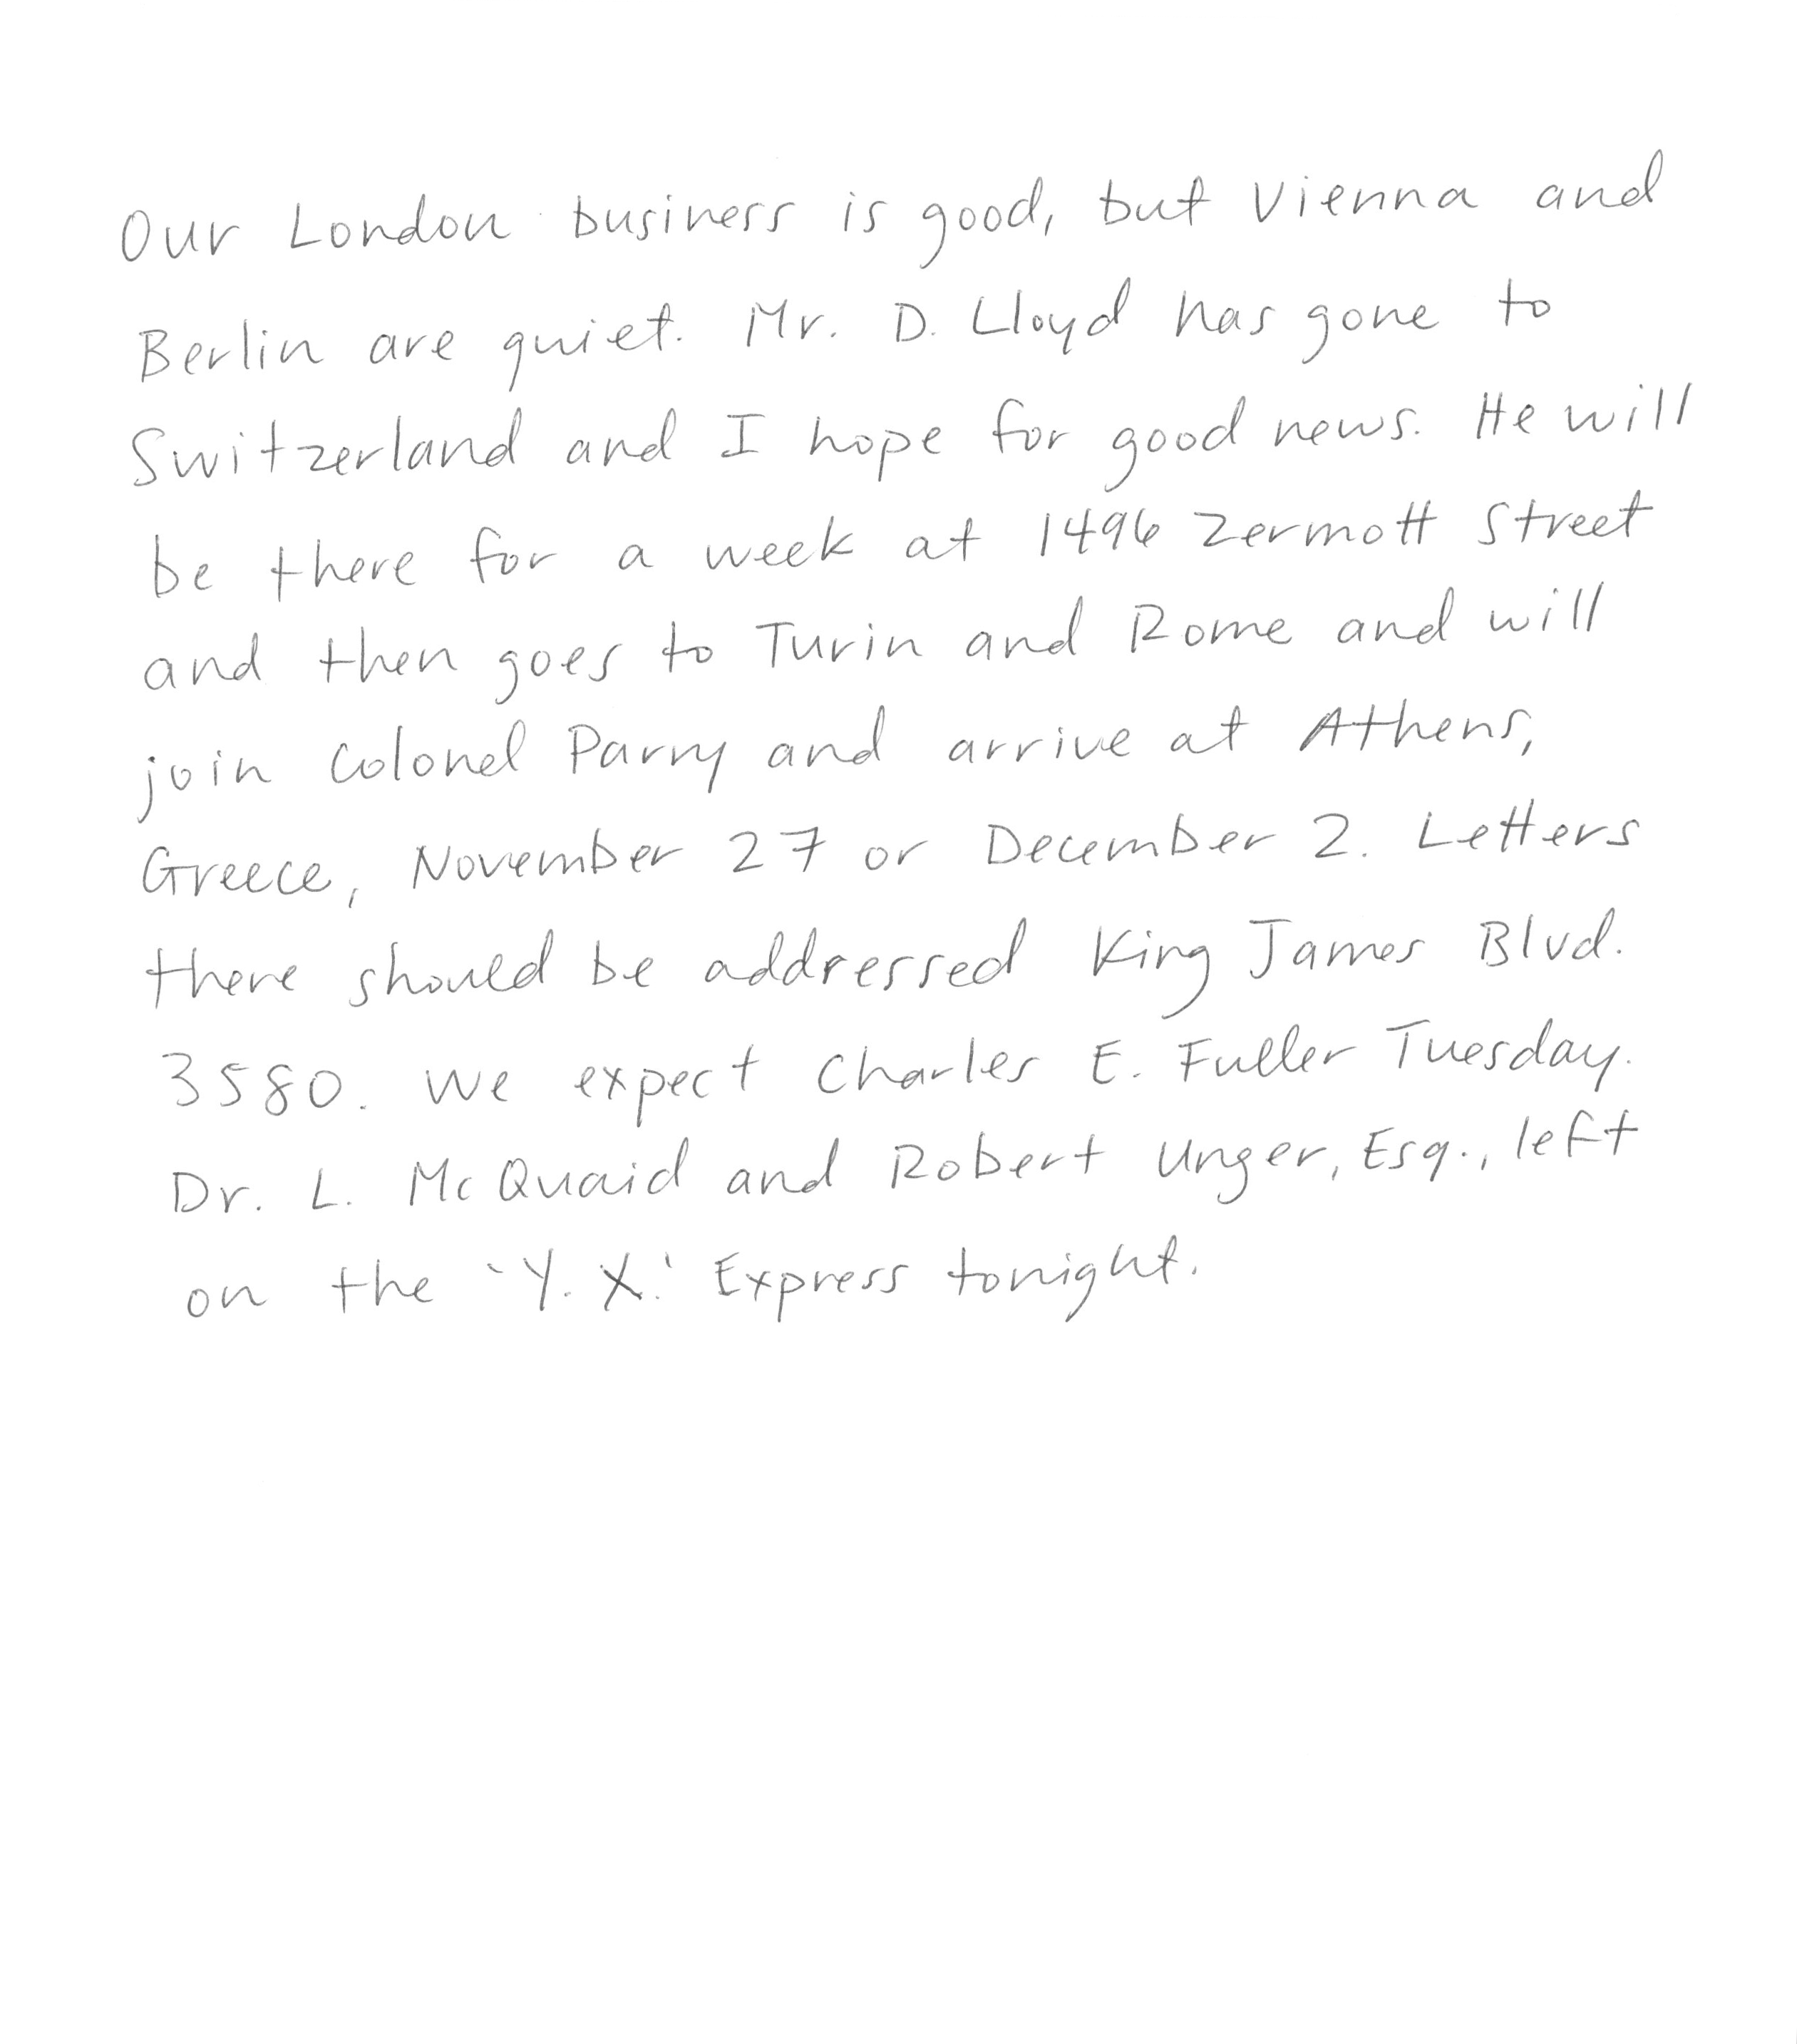 Our London business is good, but Vienna and
Berlin are quiet. Mr. D. Lloyd has gone to
Switzerland and I hope for good news. He will
be there for a week at 1496 Zermott Street
and then goes to Turin and Rome and will
join Colonel Parry and arrive at Athens,
Greece, November 27 or December 2. Letters
there should be addressed King James Blvd.
3580. We expect Charles E. Fuller Tuesday.
Dr. L. McQuaid and Robert Unger, Esq., left
on the 'Y. X.' Express tonight.